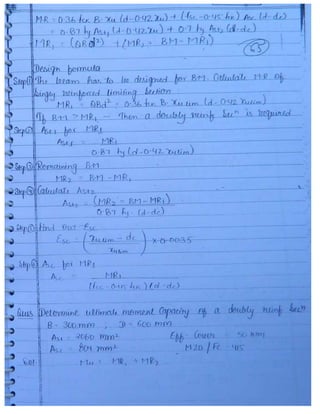 MR = 0.36 fck B. xu (d-0.42 xu) + (fsc - 0.45 fck) Asc (d-dc)
= 0.87 fy Ast1 (d-0.42 xu) + 0.87 fy Ast2 (d-dc)
MR1 = (QBd²) + (MR2 = BM - MR1)
63
Design formula
Step① The beam has to be designed for B.M. Calculate M.R of
singly reinforced limiting section
MR1 = QBd² = 0.36 fck B xulim (d-0.42 xulim)
If B.M > MR1 - Then a doubly reinf Secⁿ is required
Step② Ast1 for MR1
Ast1 = MR1
0.87 fy (d-0.42 xulim)
Step③ Remaining BM
MR2 = BM - MR1
Step④ Calculate Ast2
Ast2 = (MR2 = BM - MR1)
0.87 fy (d-dc)
Step⑤ Find out Esc
Esc = (xulim - dc) × 0.0035
xulim
Step⑥ Asc for MR2
Asc = MR2
(fsc - 0.45 fck) (d-dc)
Ques Determine ultimate moment Capacity of a doubly reinf Secⁿ
B = 300mm, D = 600 mm
Ast = 2060 mm² Eff. Cover = 50 mm
Asc = 804 mm² M20 / Fe 415
Sol. Mu = MR1 + MR2